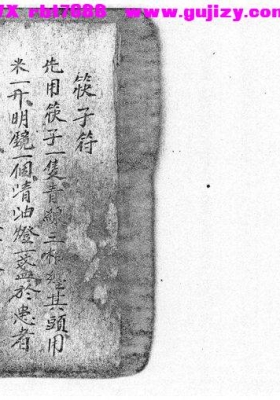 X rbt7888 www.gujizy.com
筷子符
先用筷子一隻青線三根扎其頭用
米一升明鏡一個清油燈一盞於患者